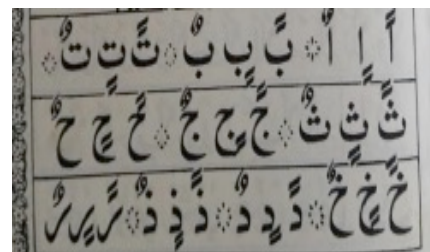 اً اٍ اٌ ۞ بً بٍ بٌ ۞ تً تٍ تٌ ۞
ثً ثٍ ثٌ ۞ جً جٍ جٌ ۞ حً حٍ حٌ
خً خٍ خٌ ۞ دً دٍ دٌ ۞ ذً ذٍ ذٌ ۞ رً رٍ رٌ